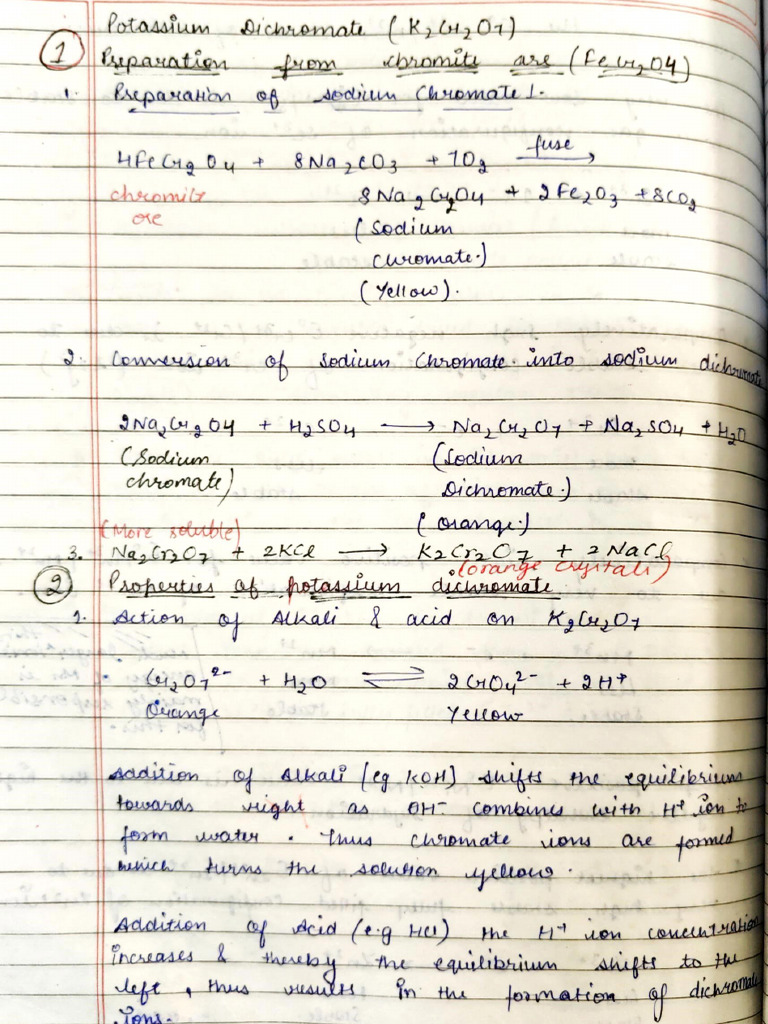 Potassium Dichromate (K2Cr2O7)
① Preparation from chromite are (FeCr2O4)
1. Preparation of sodium Chromate :-
4FeCr2O4 + 8Na2CO3 + 7O2 fuse →
8Na2Cr2O4 + 2Fe2O3 + 8CO2
chromite ore
(Sodium
chromate.)
(Yellow).
2. Conversion of sodium Chromate into sodium dichromate
2Na2Cr2O4 + H2SO4 → Na2Cr2O7 + Na2SO4 + H2O
(Sodium chromate)
(Sodium
Dichromate.)
(orange.)
(More soluble)
3. Na2Cr2O7 + 2KCl → K2Cr2O7 + 2NaCl
(orange crystals)
② Properties of potassium dichromate
1. Action of Alkali & acid on K2Cr2O7
Cr2O7²⁻ + H2O ⇌ 2CrO4²⁻ + 2H⁺
Orange Yellow
Addition of Alkali (eg KOH) shifts the equilibrium
towards right as OH⁻ combines with H⁺ ion to
form water. Thus chromate ions are formed
which turns the solution yellow.
Addition of Acid (e.g HCl) the H⁺ ion concentration
increases & thereby the equilibrium shifts to the
left, thus results in the formation of dichromate
ions.